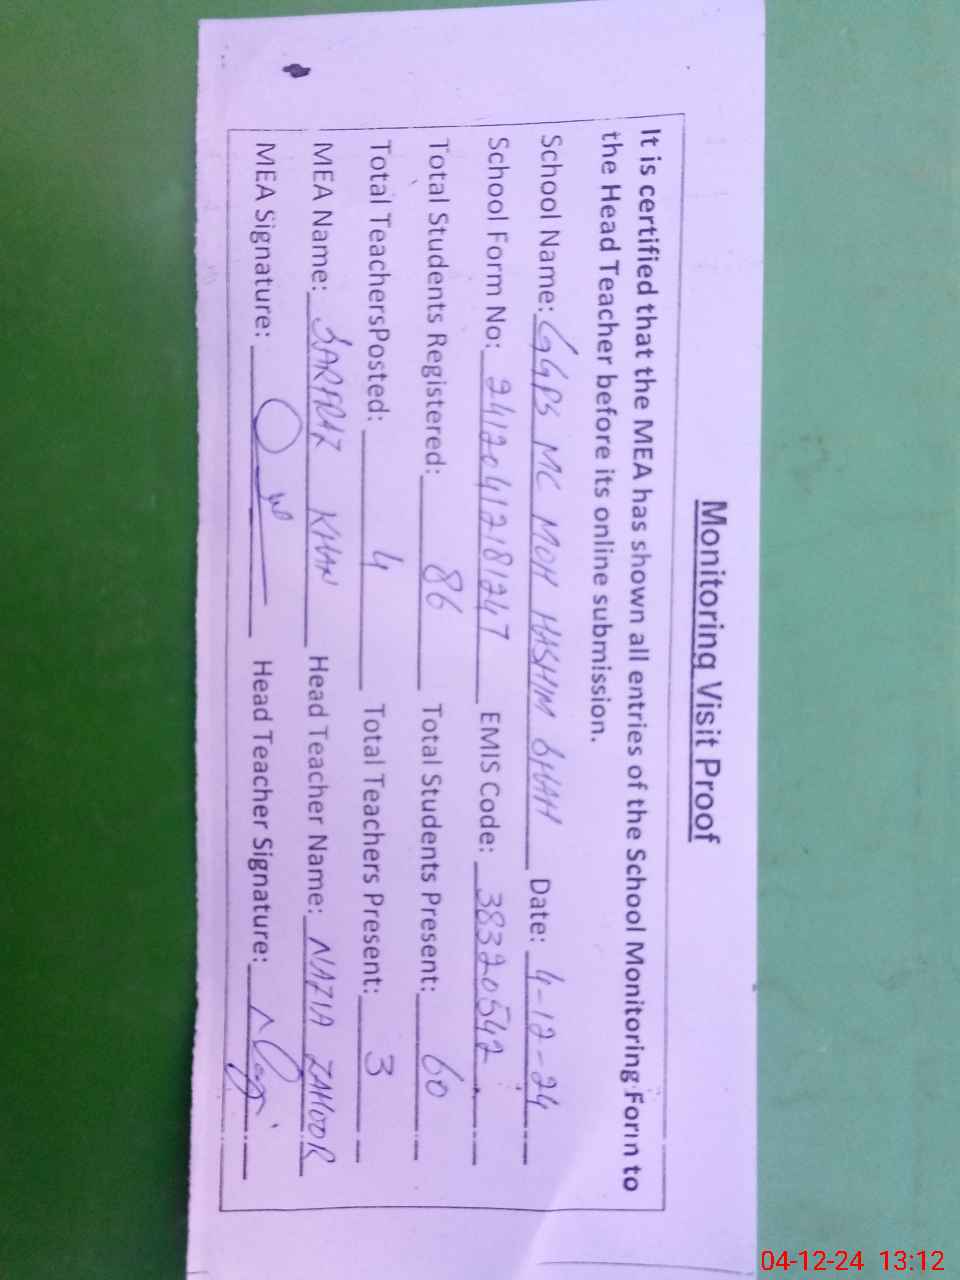 Monitoring Visit Proof
It is certified that the MEA has shown all entries of the School Monitoring Form to
the Head Teacher before its online submission.
School Name: GGPS MC MOH HASHIM SHAH Date: 4-12-24
School Form No: 24120412181247 EMIS Code: 38320542
Total Students Registered: 86 Total Students Present: 60
Total TeachersPosted: 4 Total Teachers Present: 3
MEA Name: SARFRAZ KHAN Head Teacher Name: NAZIA ZAHOOR
MEA Signature: Head Teacher Signature:
04-12-24 13:12